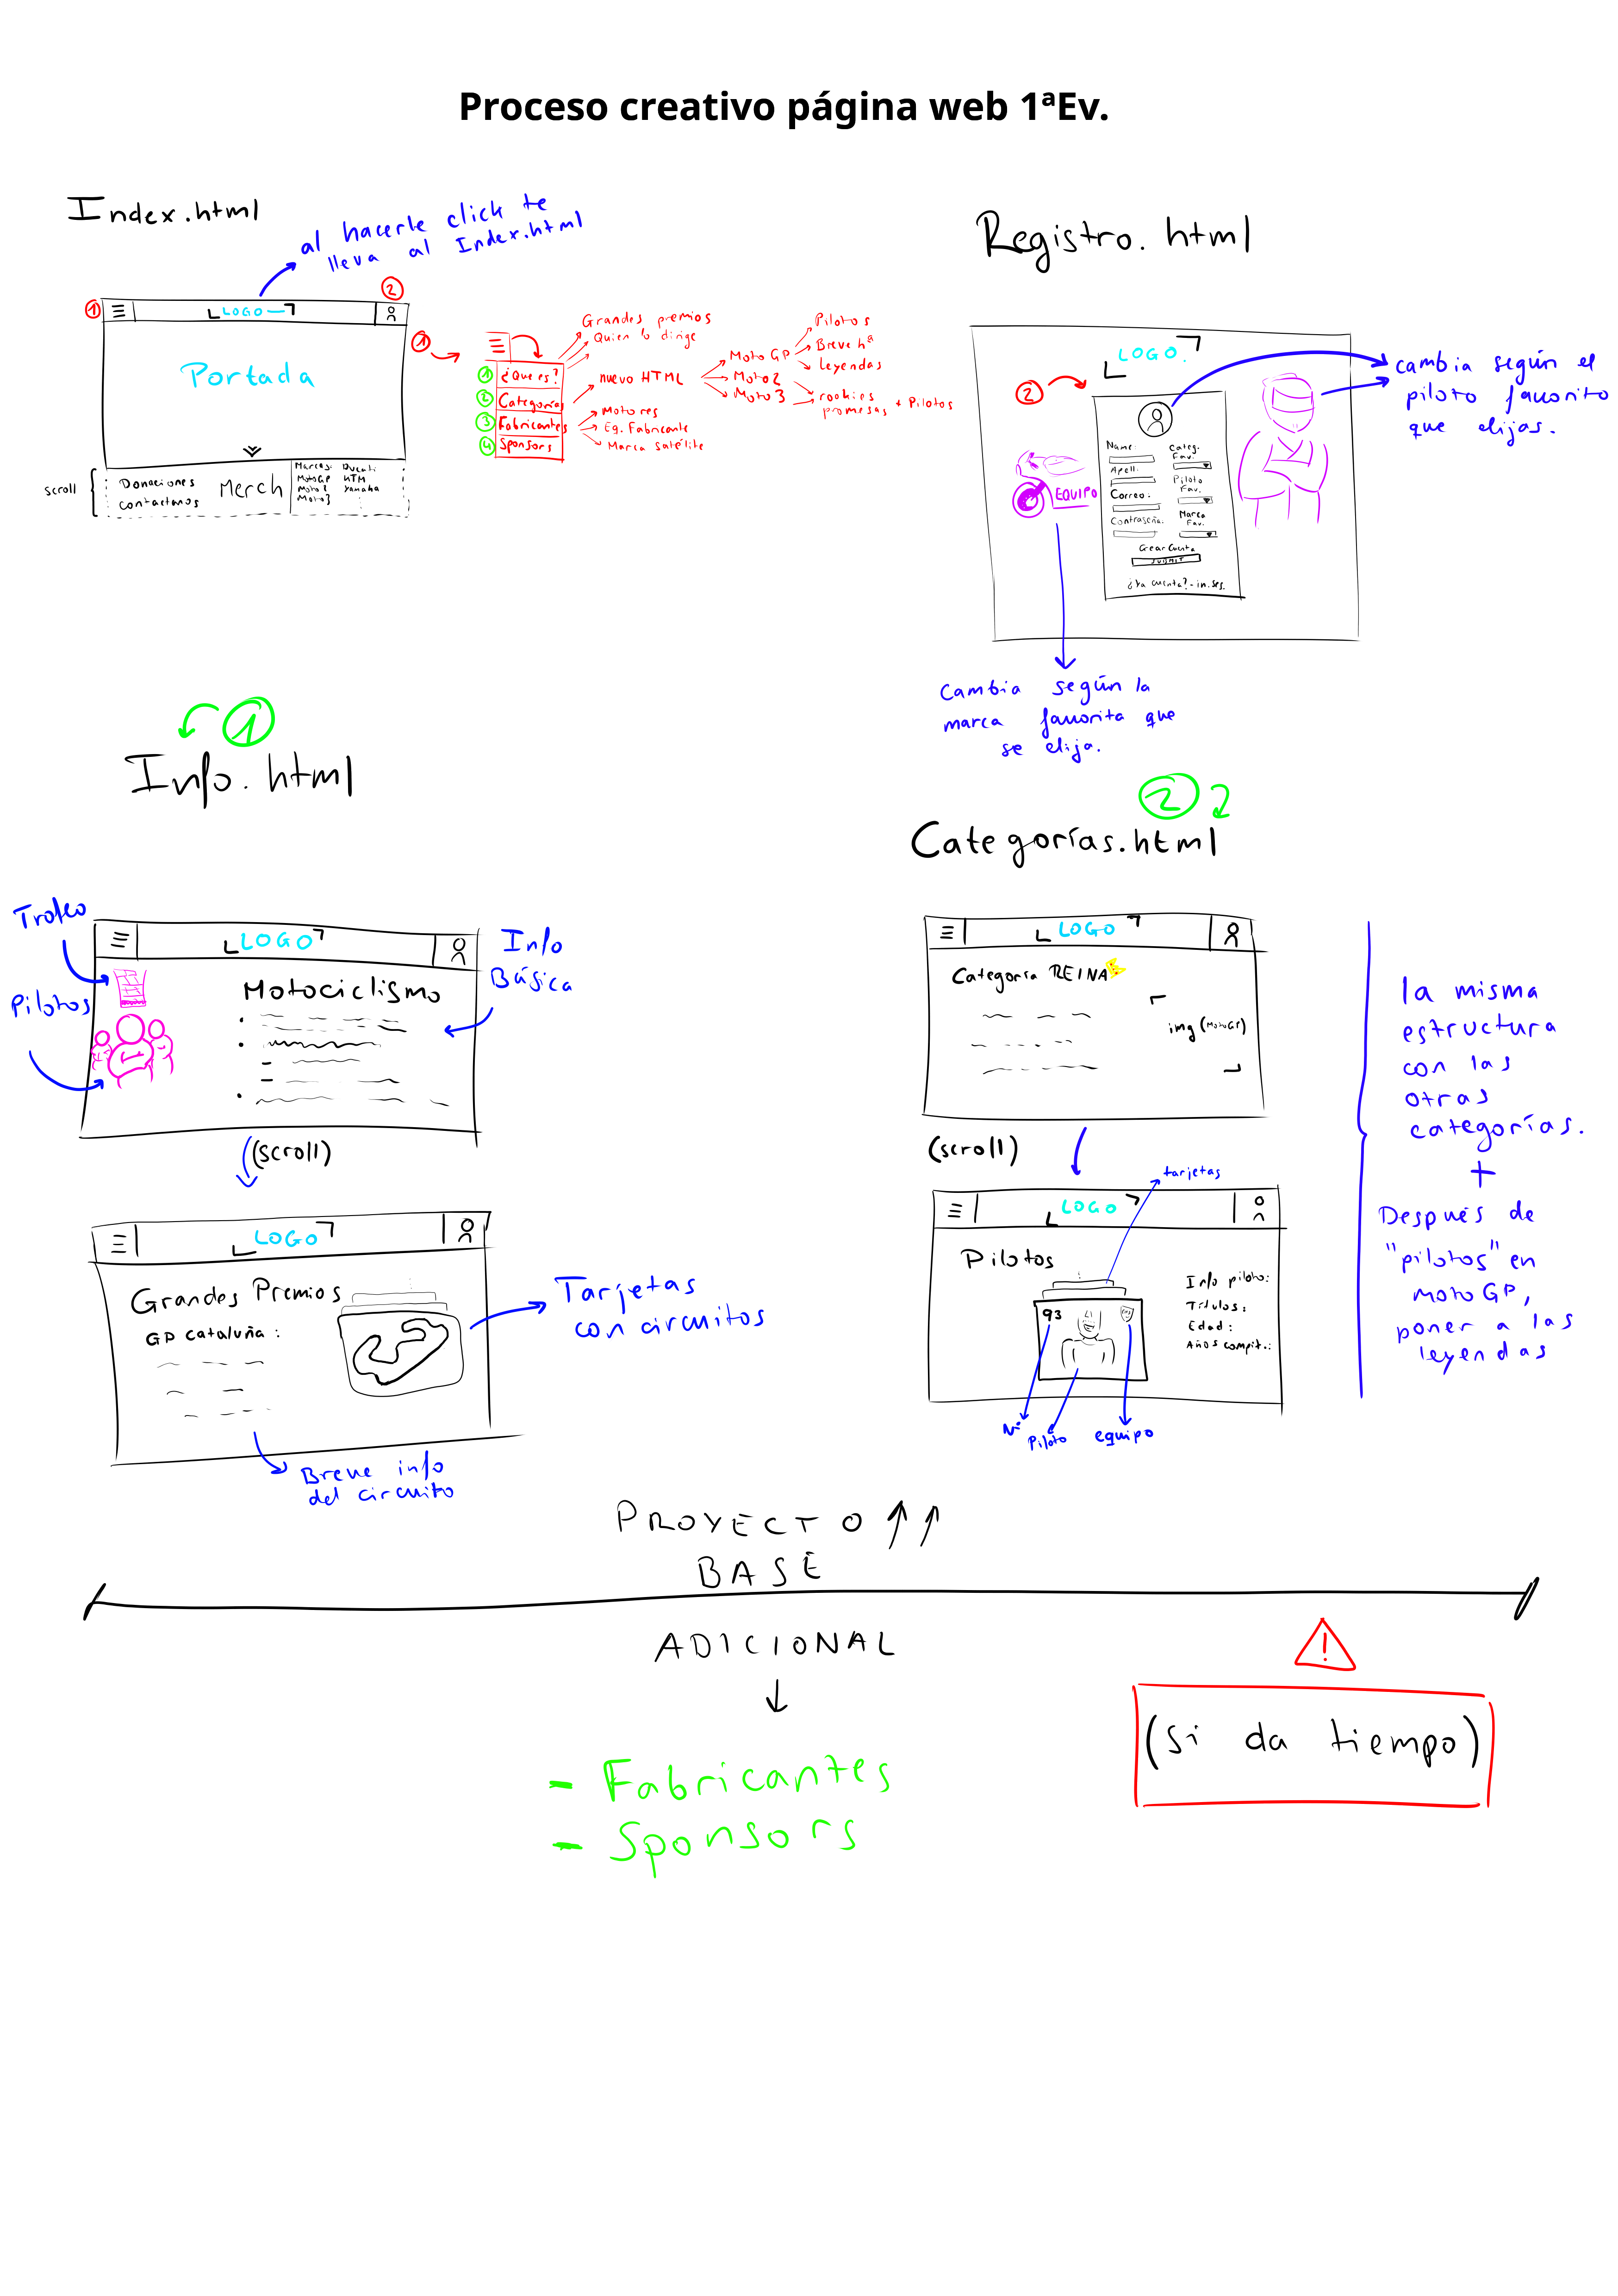 Proceso creativo página web 1ªEv.
Index.html
al hacerle click te
lleva al Index.html
1
2
LOGO
Portada
scroll
Donaciones
contactanos
Merch
Marcas:
MotoGP
Moto2
Moto3
Ducati
KTM
Yamaha
1
1 ¿Que es?
2 Categorías
3 Fabricantes
4 Sponsors
Grandes premios
Quien lo dirige
nuevo HTML
Motores
Eq. Fabricante
Marca satélite
Moto GP
Moto2
Moto3
Pilotos
Breve hª
leyendas
rookies
promesas + Pilotos
Registro.html
LOGO.
2
Name:
Apell:
Correo:
Contraseña:
Categ.
Fav.
Piloto
Fav.
Marca
Fav.
Crear Cuenta
SUBMIT
¿Ya cuenta? - in. ses.
EQUIPO
cambia según el
piloto favorito
que elijas.
Cambia según la
marca favorita que
se elija.
1
Info.html
Trofeo
Pilotos
LOGO
Motociclismo
Info
Básica
(scroll)
LOGO
Grandes Premios
GP Cataluña:
Tarjetas
con circuitos
Breve info
del circuito
2
Categorías.html
LOGO
Categoría REINA
img (MotoGP)
(scroll)
tarjetas
LOGO
Pilotos
93
Info piloto:
Títulos:
Edad:
Años compit.:
Nº
Piloto
equipo
la misma
estructura
con las
otras
categorías.
+
Después de
"pilotos" en
motoGP,
poner a las
leyendas
PROYECTO
BASE
ADICIONAL
- Fabricantes
- Sponsors
!
(si da tiempo)